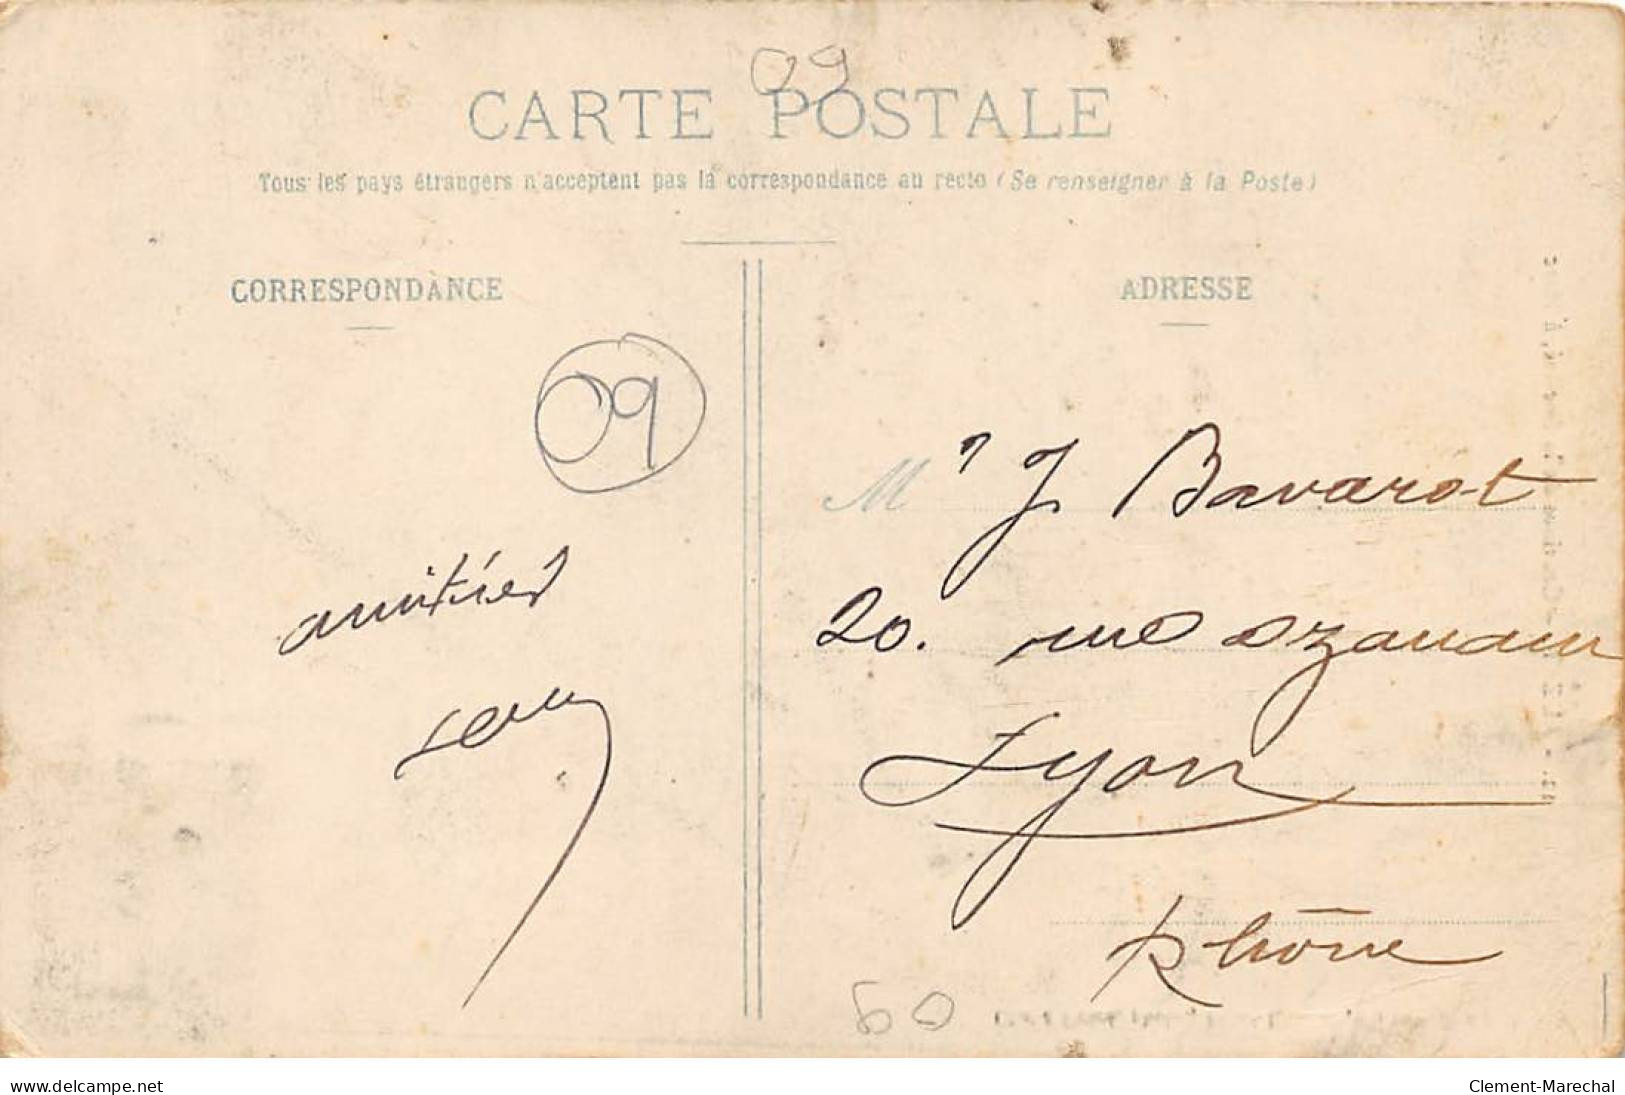 09
CARTE POSTALE
Tous les pays étrangers n'acceptent pas la correspondance au recto (Se renseigner à la Poste)
CORRESPONDANCE
09
amitiés
ADRESSE
M r J Bavarot
20. rue Ozanam
Lyon
Rhône
60
www.delcampe.net
Clement-Marechal